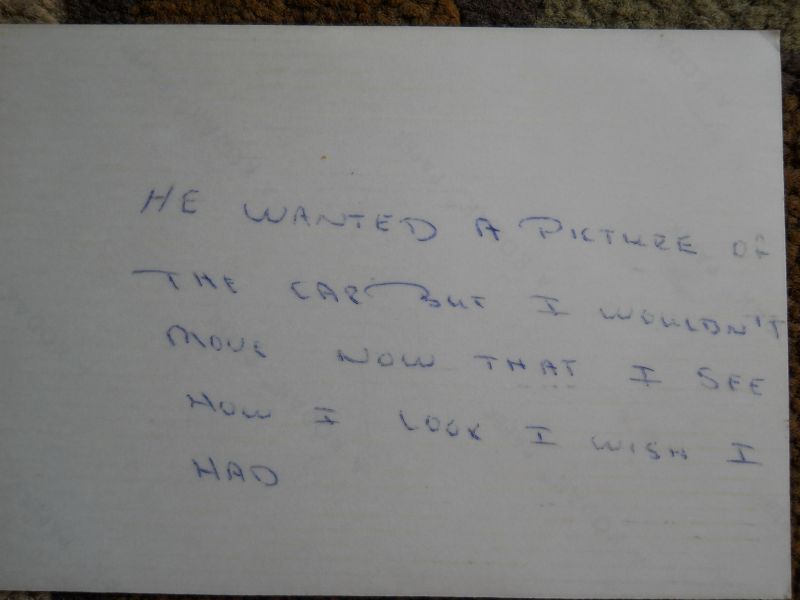 HE WANTED A PICTURE OF
THE CAR BUT I WOULDN'T
MOVE NOW THAT I SEE
HOW I LOOK I WISH I
HAD